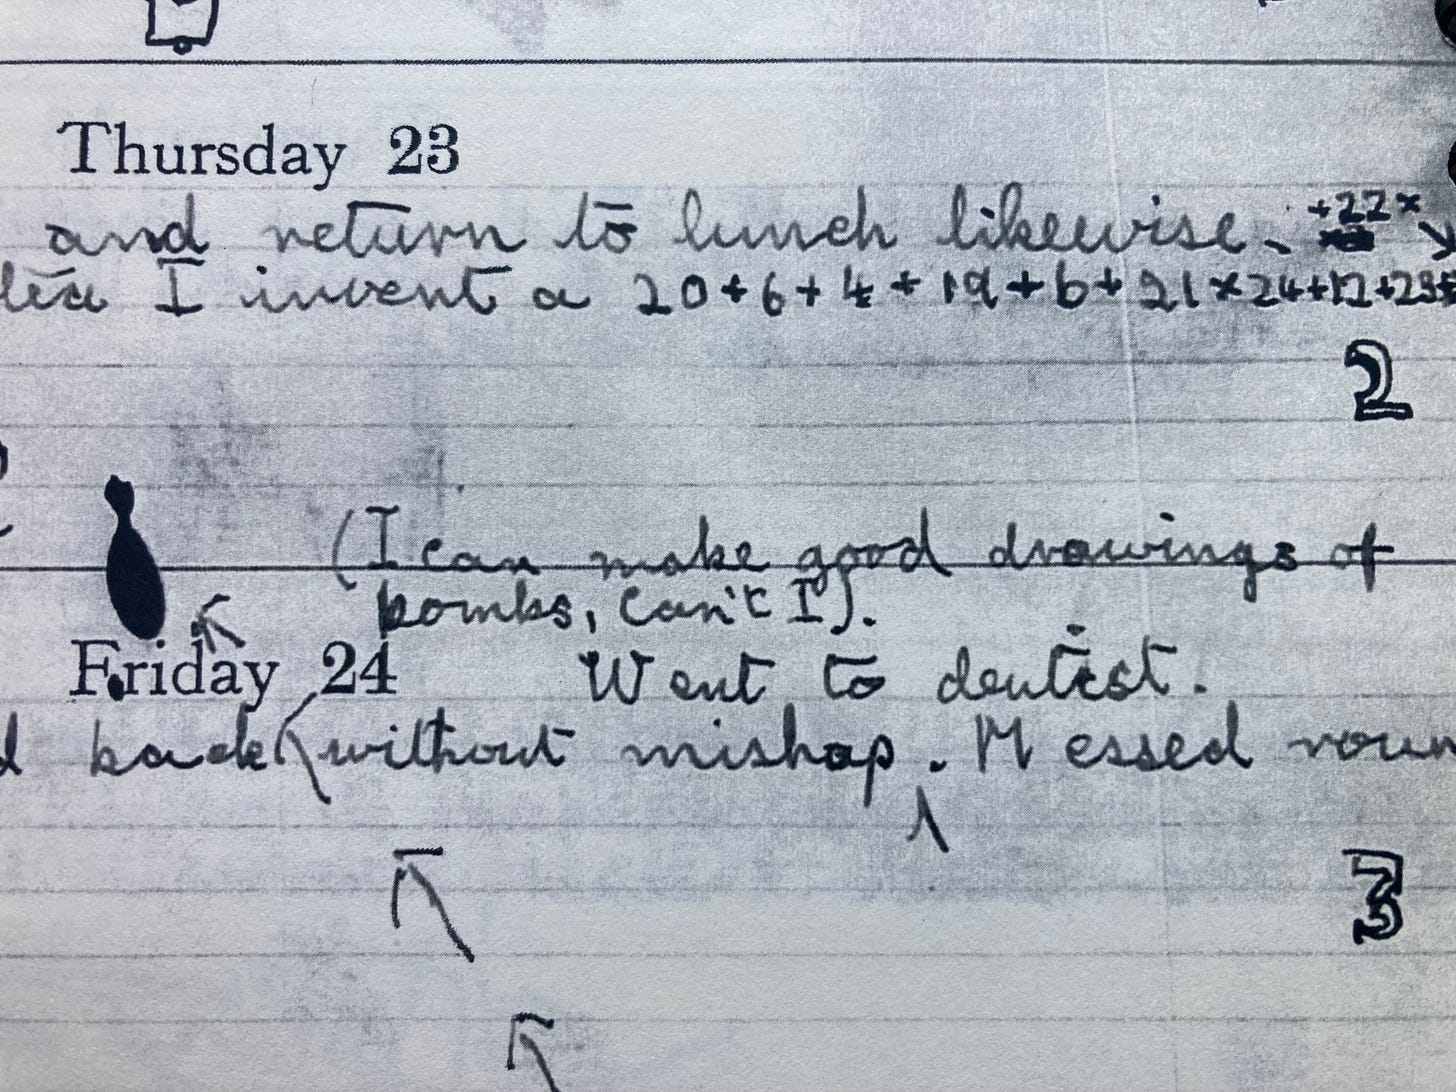 Thursday 23
and return to lunch likewise. +22×
I invent a 20+6+4+19+6+21×24+12+23+
2
(I can make good drawings of
bombs, can't I).
Friday 24 Went to dentist.
back without mishap. Messed roun
3